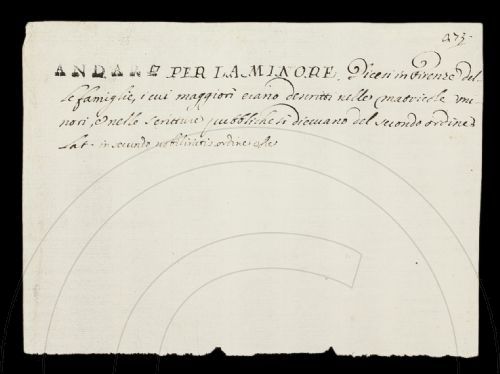 275
ANDARE PER LA MINORE. Dicesi in Firenze del-
le famiglie, i cui maggiori erano descritti nelle matricole mi-
nori, e nelle scritture pubbliche si dicevano del secondo ordine
Lat. in secundo nobilitatis ordine esse